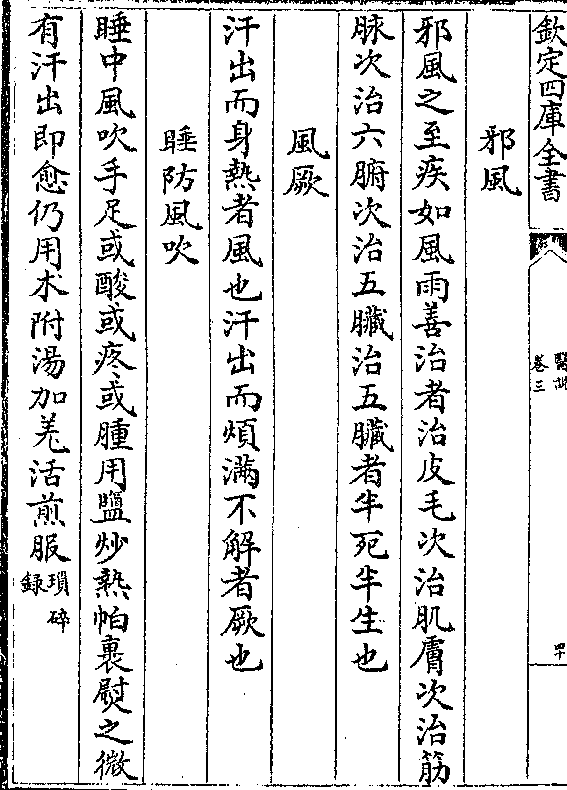 欽定四庫全書
醫說
卷三
邪風
邪風之至疾如風雨善治者治皮毛次治肌膚次治筋
脉次治六腑次治五臟治五臟者半死半生也
風厥
汗出而身熱者風也汗出而煩滿不解者厥也
睡防風吹
睡中風吹手足或酸或疼或腫用鹽炒熱帕裹熨之微
有汗出即愈仍用术附湯加羌活煎服瑣碎
録